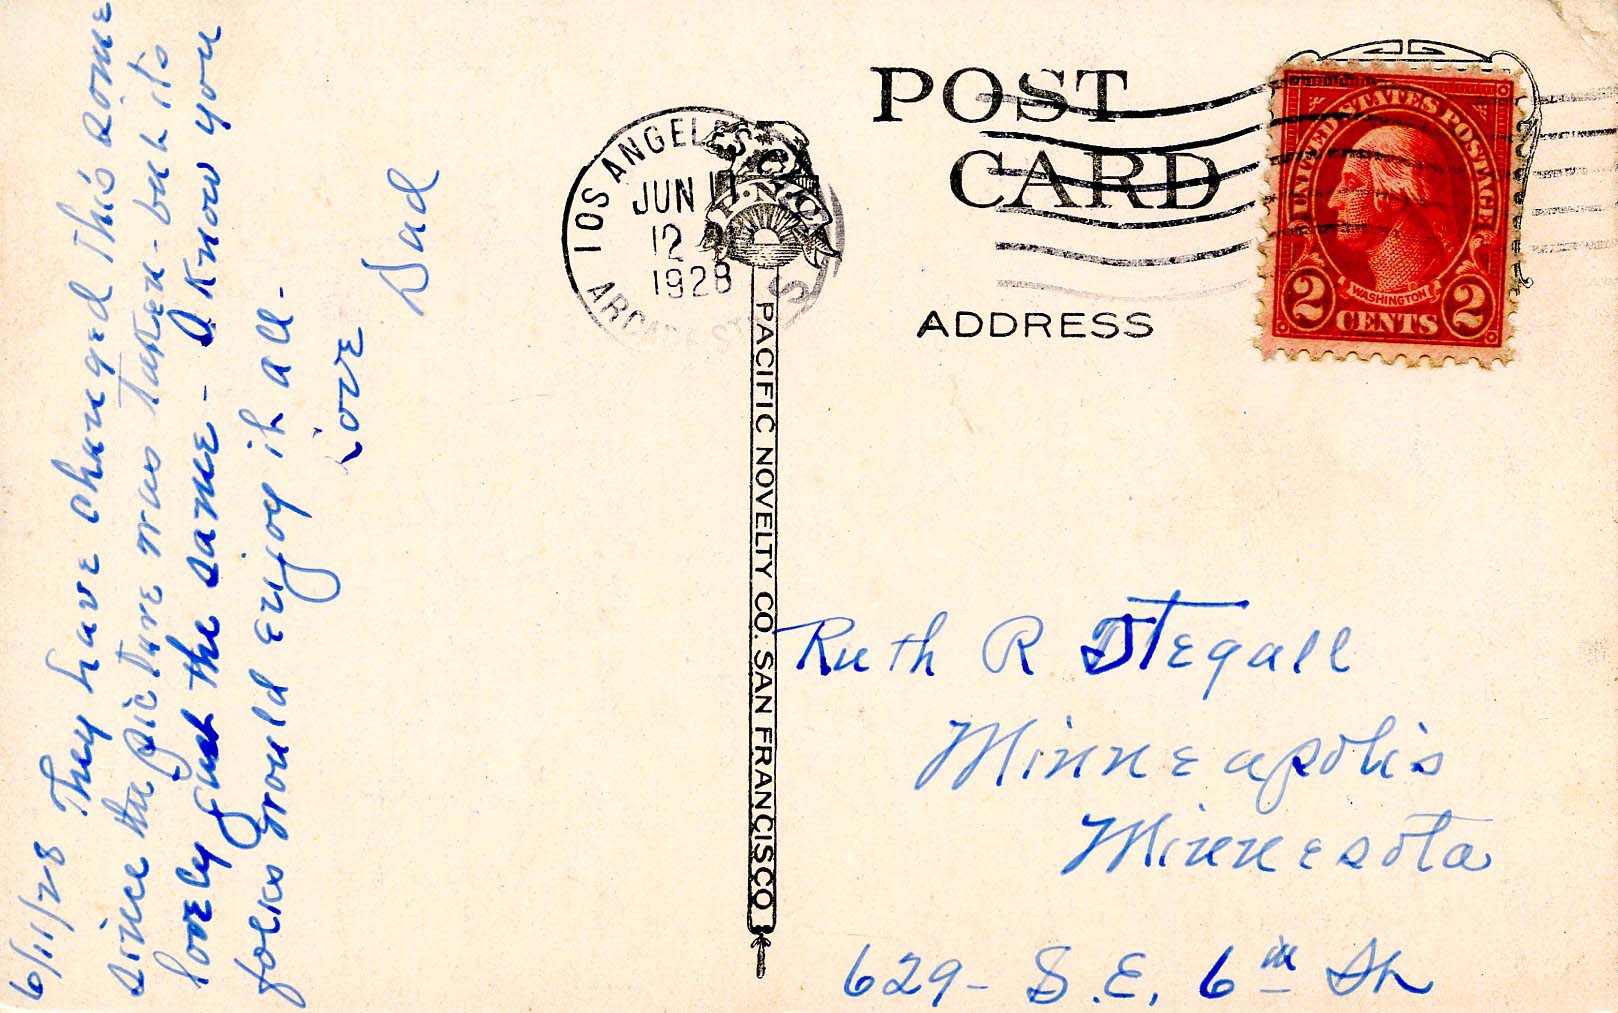 6/11/28 They have changed this some
since the picture was taken - but its
lovely just the same - I know you
folks would enjoy it all -
Love
Dad
LOS ANGELES, CALIF.
JUN 11
12
1928
ARCADE STA.
PACIFIC NOVELTY CO. SAN FRANCISCO
POST
CARD
ADDRESS
UNITED STATES POSTAGE
WASHINGTON
2 CENTS 2
Ruth R Stegall
Minneapolis
Minnesota
629 - S.E. 6th St